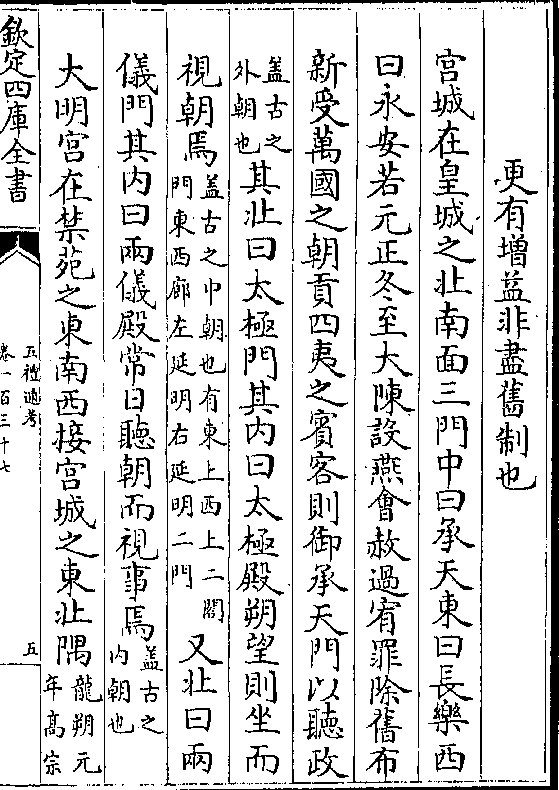 更有增益非盡舊制也
宮城在皇城之北南面三門中曰承天東曰長樂西
曰永安若元正冬至大陳設燕會赦過宥罪除舊布
新受萬國之朝貢四夷之賓客則御承天門以聽政
蓋古之
外朝也
其北曰太極門其内曰太極殿朔望則坐而
視朝焉
蓋古之中朝也有東上西上二閤
門東西廊左延明右延明二門
又北曰兩
儀門其内曰兩儀殿常日聽朝而視事焉
蓋古之
内朝也
大明宮在禁苑之東南西接宮城之東北隅
龍朔元
年高宗
欽定四庫全書
五禮通考
卷一百三十七
五